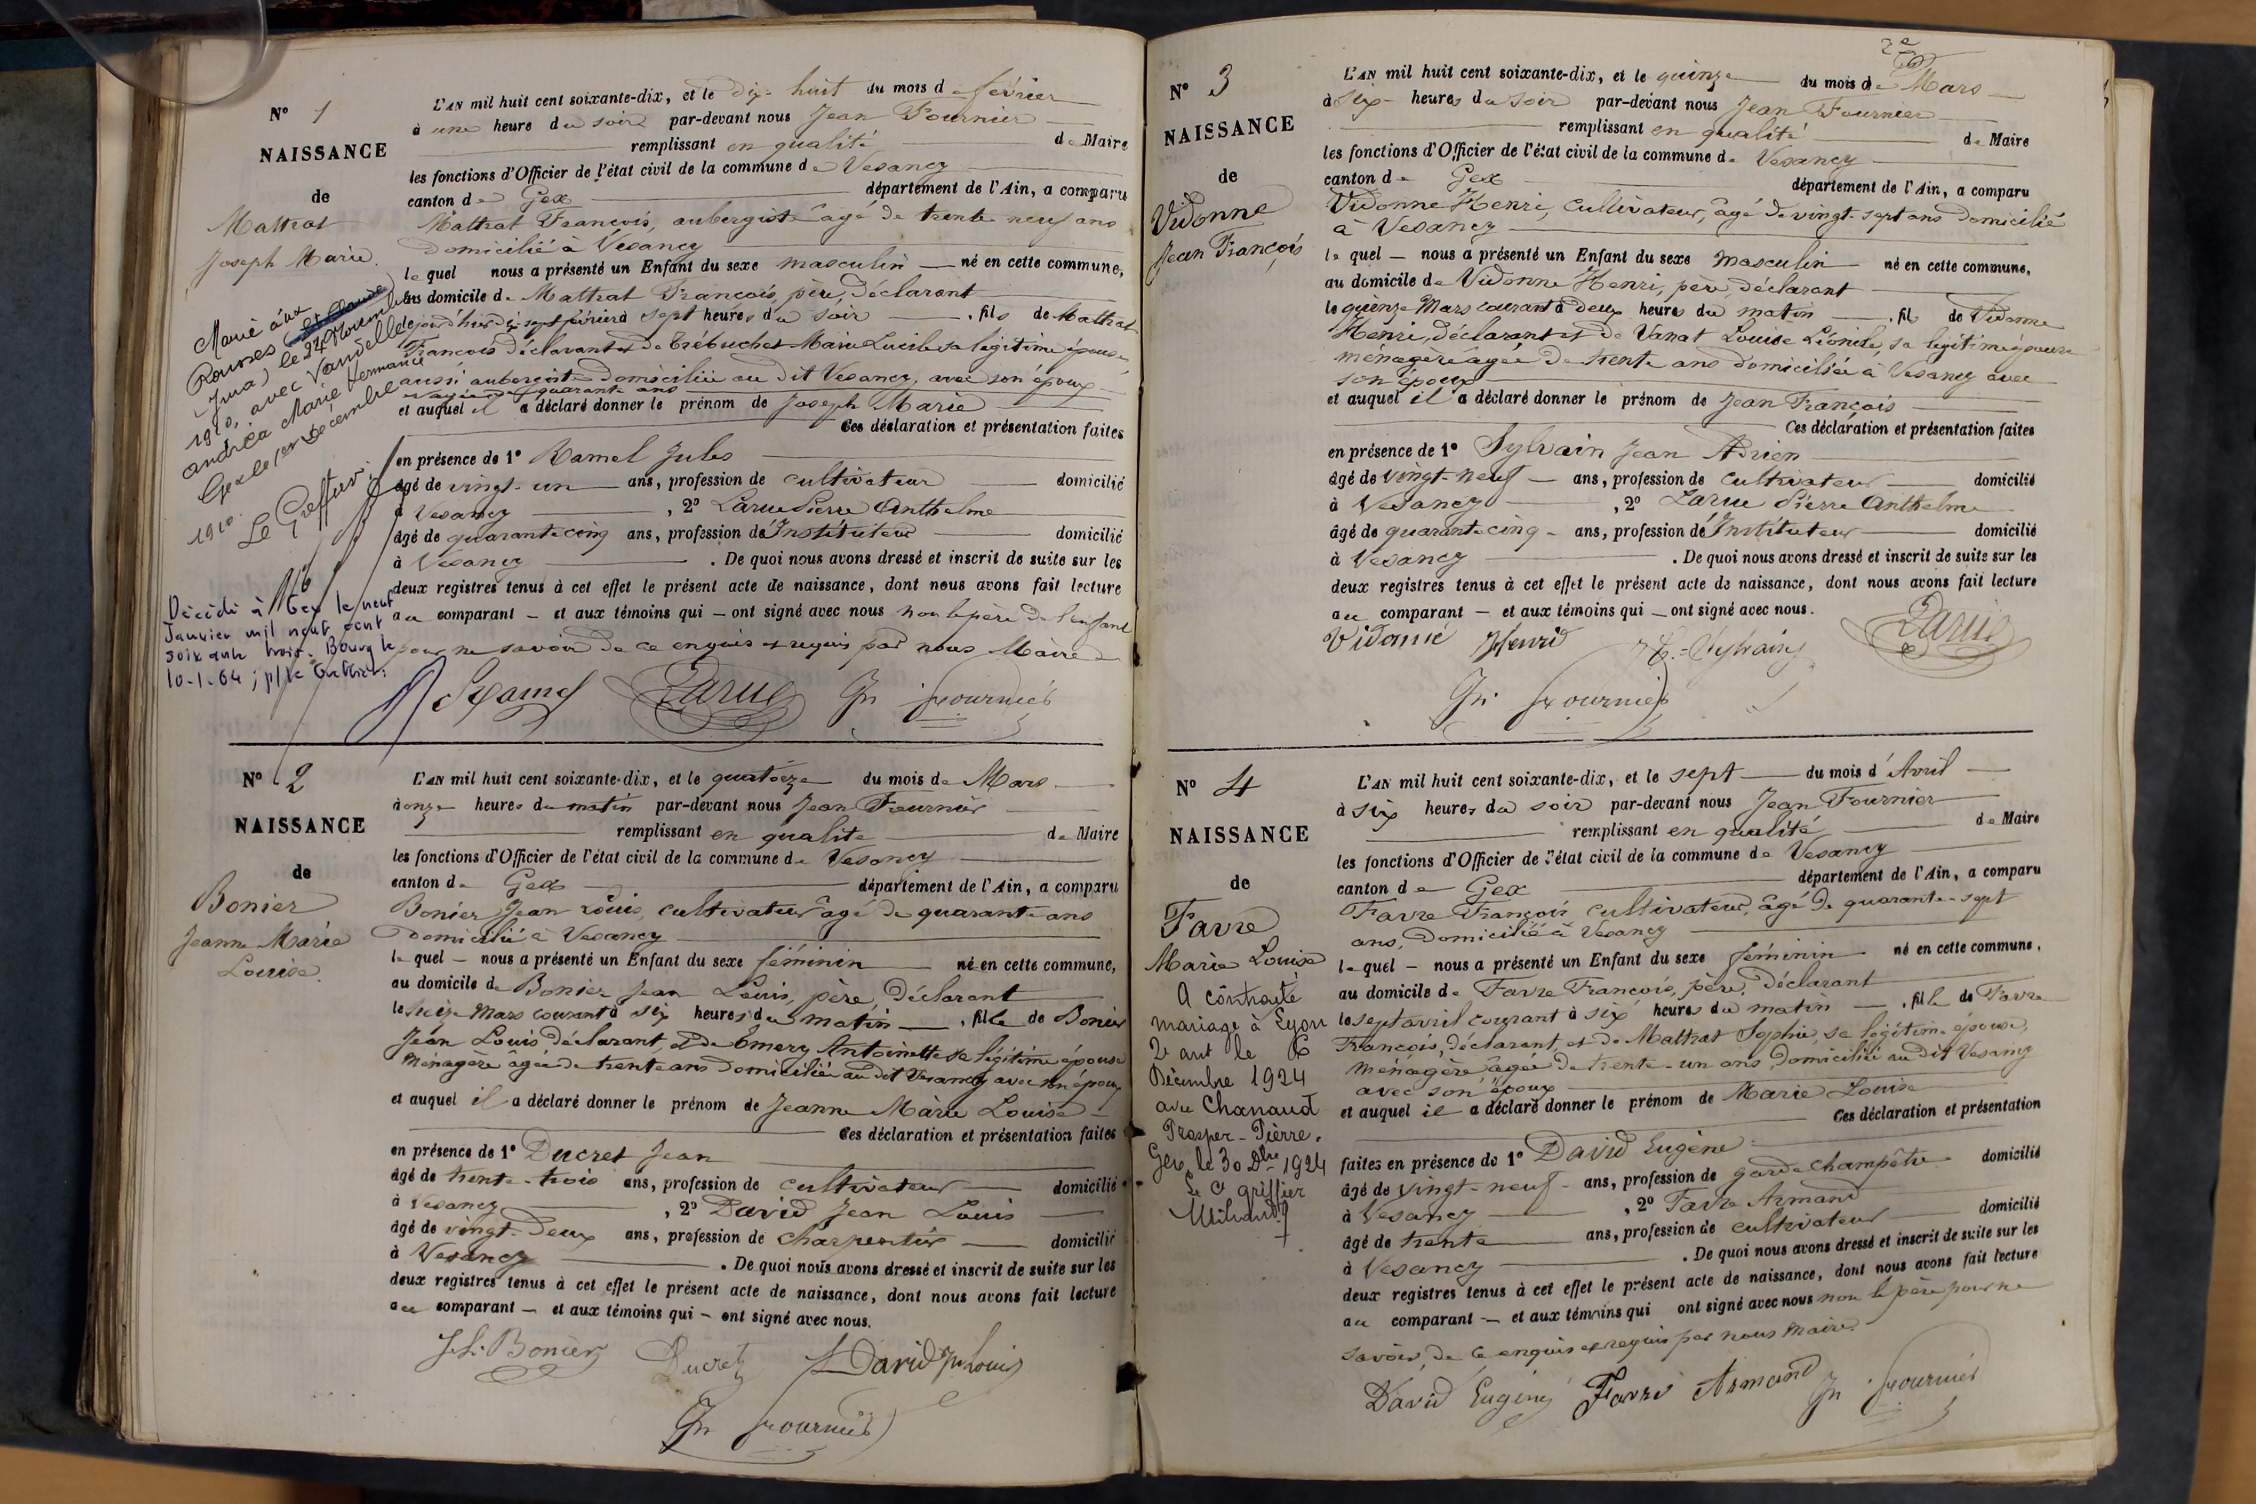 N° 1
NAISSANCE
de
Mattrat
Joseph Marie.
Marié aux
Rousses
Jura) le 24 Novembre
1910, avec Vandelle
andréa Marie Hermance
Gex le 1er Décembre
1910.
Le Greffier.
Décédé à Gex le neuf
Janvier mil neuf cent
soixante trois. Bourg le
10-1-64; p/le Greffier:
L'AN mil huit cent soixante-dix, et le dix-huit du mois de février
à une heure du soir par-devant nous Jean Fournier
remplissant en qualité de Maire
les fonctions d'Officier de l'état civil de la commune de Vesancy
canton de Gex département de l'Ain, a comparu
Mattrat François, aubergiste âgé de trente neuf ans
domicilié à Vesancy
lequel nous a présenté un Enfant du sexe masculin né en cette commune,
au domicile de Mattrat François, père, déclarant
dix sept février à sept heures du soir , fils de Mattrat
François déclarant et de Trébuchet Marie Lucile sa légitime épouse,
aussi aubergiste domiciliée au dit Vesancy, avec son époux
âgée de quarante ans
et auquel il a déclaré donner le prénom de Joseph Marie
Ces déclaration et présentation faites
en présence de 1° Ramel Jules
âgé de vingt-un ans, profession de cultivateur domicilié
à Vesancy , 2° Larue Pierre Anthelme
âgé de quarante cinq ans, profession de Instituteur domicilié
à Vesancy . De quoi nous avons dressé et inscrit de suite sur les
deux registres tenus à cet effet le présent acte de naissance, dont nous avons fait lecture
au comparant – et aux témoins qui – ont signé avec nous non le père de l'enfant
pour ne savoir de ce enquis et requis par nous Maire
Ramel Larue Jn Fournier
N° 2
NAISSANCE
de
Bonier
Jeanne Marie
Louise.
L'AN mil huit cent soixante-dix, et le quatorze du mois de Mars
à onze heures du matin par-devant nous Jean Fournier
remplissant en qualité de Maire
les fonctions d'Officier de l'état civil de la commune de Vesancy
canton de Gex département de l'Ain, a comparu
Bonier Jean Louis, cultivateur âgé de quarante ans
domicilié à Vesancy
lequel – nous a présenté un Enfant du sexe féminin né en cette commune,
au domicile de Bonier Jean Louis, père, déclarant
le Mars courant à six heures du matin , fille de Bonier
Jean Louis déclarant et de Emery Antoinette sa légitime épouse
Ménagère âgée de trente ans domiciliée au dit Vesancy avec son époux
et auquel il a déclaré donner le prénom de Jeanne Marie Louise
Ces déclaration et présentation faites
en présence de 1° Ducret Jean
âgé de trente-trois ans, profession de cultivateur domicilié
à Vesancy , 2° David Jean Louis
âgé de vingt-deux ans, profession de charpentier domicilié
à Vesancy . De quoi nous avons dressé et inscrit de suite sur les
deux registres tenus à cet effet le présent acte de naissance, dont nous avons fait lecture
au comparant – et aux témoins qui – ont signé avec nous.
J. L. Bonier Ducret David Jn Louis
Jn Fournier
2e
N° 3
NAISSANCE
de
Vidonne
Jean François
L'AN mil huit cent soixante-dix, et le quinze du mois de Mars
à six heures du soir par-devant nous Jean Fournier
remplissant en qualité de Maire
les fonctions d'Officier de l'état civil de la commune de Vesancy
canton de Gex département de l'Ain, a comparu
Vidonne Henri, cultivateur, âgé de vingt-sept ans domicilié
à Vesancy
lequel – nous a présenté un Enfant du sexe masculin né en cette commune,
au domicile de Vidonne Henri, père, déclarant
le quinze Mars courant à deux heures du matin , fils de Vidonne
Henri, déclarant et de Vanat Louise Léonise, sa légitime épouse
ménagère âgée de trente ans domiciliée à Vesancy avec
son époux
et auquel il a déclaré donner le prénom de Jean François
Ces déclaration et présentation faites
en présence de 1° Sylvain Jean Adrien
âgé de vingt-neuf – ans, profession de cultivateur domicilié
à Vesancy , 2° Larue Pierre Anthelme
âgé de quarante cinq – ans, profession de Instituteur domicilié
à Vesancy . De quoi nous avons dressé et inscrit de suite sur les
deux registres tenus à cet effet le présent acte de naissance, dont nous avons fait lecture
au comparant – et aux témoins qui – ont signé avec nous.
Vidonne Henri Sylvain Larue
Jn Fournier
N° 4
NAISSANCE
de
Favre
Marie Louise
A contracté
mariage à Lyon
2e arrt le 6
Décembre 1924
avec Chanaud
Prosper-Pierre.
Gex, le 30 Dbre 1924
Le Cs greffier
L'AN mil huit cent soixante-dix, et le sept du mois d'Avril
à six heures du soir par-devant nous Jean Fournier
remplissant en qualité de Maire
les fonctions d'Officier de l'état civil de la commune de Vesancy
canton de Gex département de l'Ain, a comparu
Favre François, cultivateur, âgé de quarante-sept
ans, domicilié à Vesancy
lequel – nous a présenté un Enfant du sexe féminin né en cette commune,
au domicile de Favre François, père, déclarant
le sept avril courant à six heures du matin , fille de Favre
François, déclarant et de Mattrat Sophie, sa légitime épouse,
ménagère âgée de trente-un ans, domiciliée au dit Vesancy
avec son époux
et auquel il a déclaré donner le prénom de Marie Louise
Ces déclaration et présentation
faites en présence de 1° David Eugène
âgé de vingt-neuf – ans, profession de garde champêtre domicilié
à Vesancy , 2° Favre Armand
âgé de trente ans, profession de cultivateur domicilié
à Vesancy . De quoi nous avons dressé et inscrit de suite sur les
deux registres tenus à cet effet le présent acte de naissance, dont nous avons fait lecture
au comparant – et aux témoins qui ont signé avec nous non le père pour ne
savoir, de ce enquis et requis par nous Maire.
David Eugène Favre Armand Jn Fournier